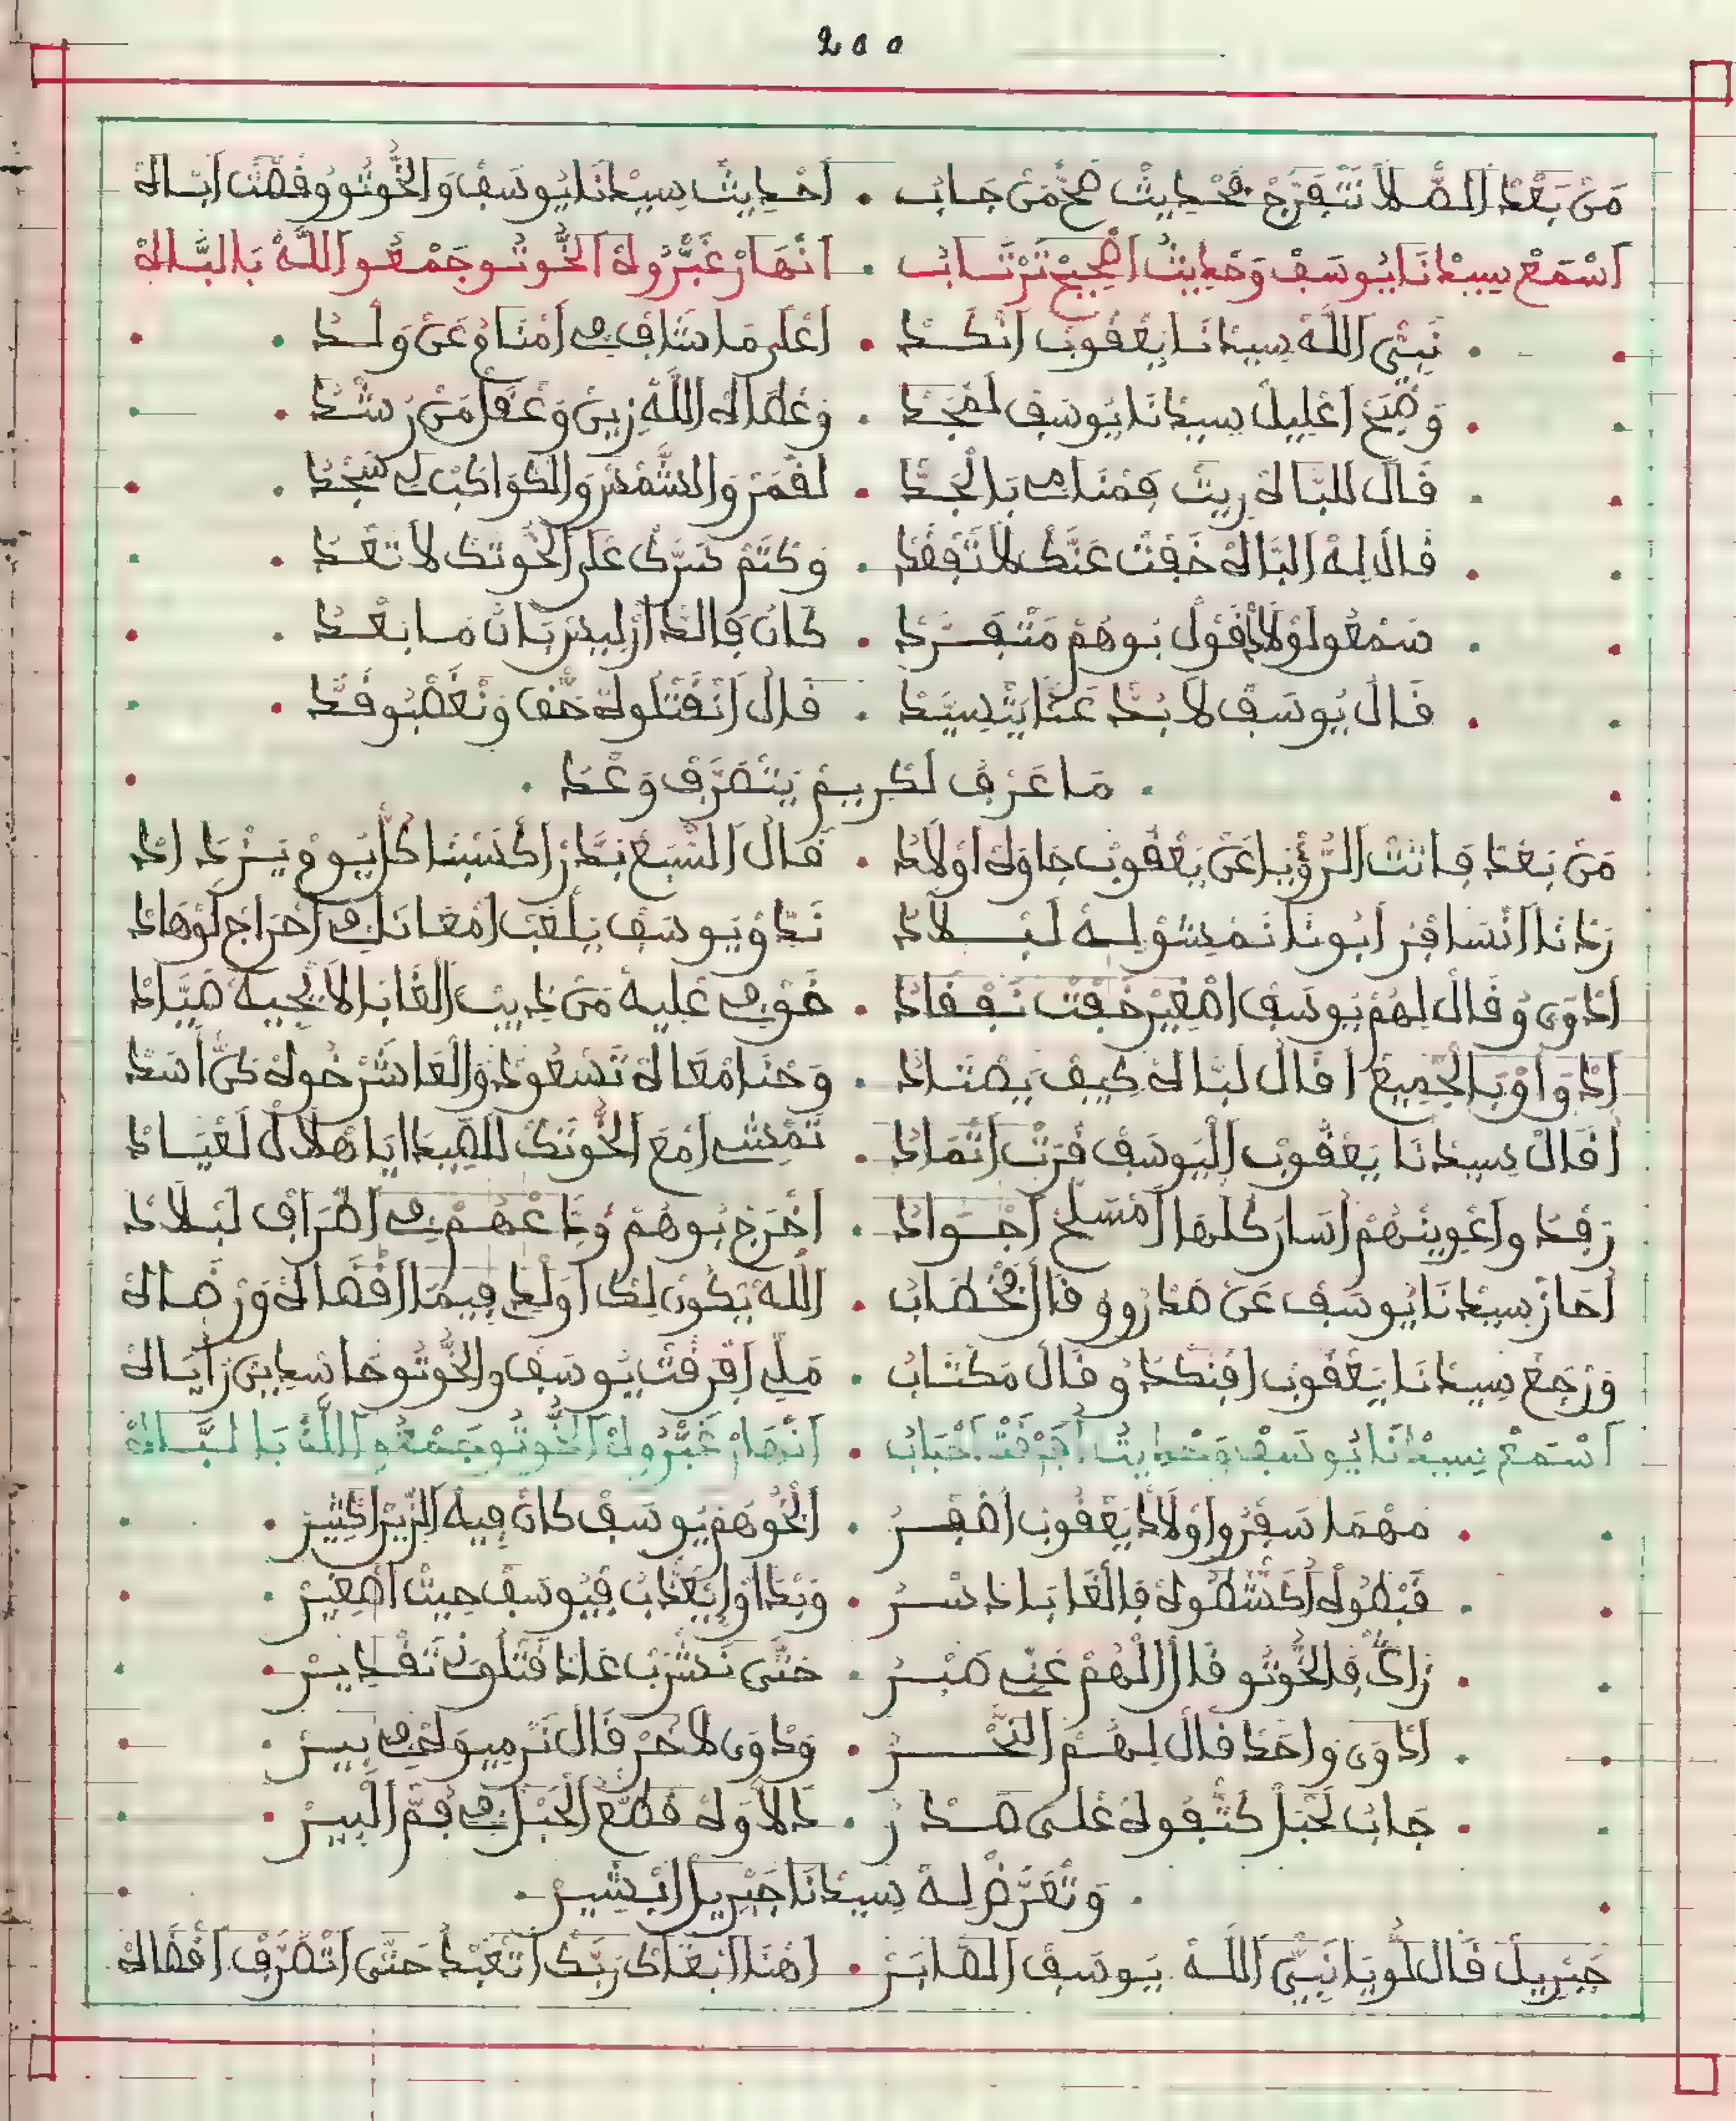 200
مَنْ بَعْدْ الصْلَا نَتْفَرَّجْ فْحْدِيثْ صَحْ مَنْ جَابْ • اَحْدِيثْ سِيدْنَا يُوسَفْ وَالْخُوتُو وُقَصَّتْ اَبَّاهْ
اَسْمَعْ سِيدْنَا يُوسَفْ وَحْدِيثُ اَصْحِيحْ تَرْتَابْ • اَنْهَارْ غَبَّرُوهْ الْخُوتُو جَمْعُو اَللَّهْ بَالبَّاهْ
نَبِي اللَّهْ سِيدْنَا يَعْقُوبْ اَنْكَدْ • اَعْلَى مَا شَافْ فِي اَمْنَامُ عَنْ وَلْدْ
وَصْبَحْ اَعْلِيلْ سِيدْنَا يُوسَفْ لَمْجَدْ • وَعْطَاهْ اللَّهْ زِينْ وَعْقَلْ مَنْ رُشْدْ
قَالْ لَلبَّاهْ رِيتْ فَمْنَامِي بَالْجَدْ • لَقْمَرْ وَالشَّمْسْ وَالكْوَاكَبْ لِي سَجْدْ
قَالْ لِهْ اَلبَّاهْ خَفْتْ عَنَّكْ لَا تَفْقَدْ • وَكْتَمْ سَرَّكْ عْلَى الْخُوتَكْ لَا تَغْدْ
سَمْعُو لَوْلَادْ قُولْ بُوهُمْ مَتْفَرَّدْ • كَانْ فَالدَّارْ لِيسْ بَانْ مَا بَعْدْ
قَالْ يُوسَفْ لَا بُدْ عَنَّا يَتْسِيَّدْ • قَالْ اَنْقَتْلُوهْ حَقْ وَنْغَصْبُو قَدْ
مَا عْرَفْ لَكْرِيمْ يَتْصَرَّفْ وَعْدْ
مَنْ بَعْدْ فَاتَتْ الرُّؤْيَا عَنْ يَعْقُوبْ جَاوْهْ اَوْلَادْ • قَالْ السْبَعْ نَدَّرْ اَكْسَبْنَا كُلْ يُومْ يَزْرَدْ اَدْ
رَدْنَا اَنْسَافَرْ اَبُونَا نَمْشِوْ لِهْ لَبْلَادْ نَدَّوْ يُوسَفْ يَلْعَبْ اَمْعَانَا فِي اَحْرَاجْ لَوْهَادْ
اَدْوَى وُقَالْ لِهُمْ يُوسَفْ اَصْغِيرْ خَفْتْ نَفْقَادْ • خَوْفِي عْلِيهْ مَنْ دِيبْ الغَابَا لَا يْجِيهْ صَيَّادْ
اَدْوَاوْ بَالْجَمِيعْ اَقَالْ لَبَّاهْ كِيفْ يَصْتَادْ • وَحْنَا مْعَاهْ تَسْعُودْ وَالْعَاشَرْ خُوهْ كِي اَسَدْ
اَقَالْ سِيدْنَا يَعْقُوبْ اَلْيُوسَفْ قَرْبْ اَتْمَادْ • تَمْشِي اَمْعَ الْخُوتَكْ للصِّيدْ اَيَا هْلَالْ لَعْيَادْ
رَفْدْ وَاعْوِينْهُمْ اَسَارْ كُلْهَا اَمْسَلَّحْ اَجْوَادْ • اَخْرَجْ بُوهُمْ وَدَّعْهُمْ فِي اَطْرَافْ لَبْلَادْ
اَحَازْ سِيدْنَا يُوسَفْ عَنْ صَدْرُو وُقَالْ فْخْطَابْ • اَللَّهْ يْكُونْ لِكْ اَوَلْدِي فِيمَا اَقْضَاهْ وَرْضَاهْ
وَرْجَعْ سِيدْنَا يَعْقُوبْ اَفْنَكْدُ وُقَالْ مَكْتَابْ • مَلِّي اَفْرَقْتْ يُوسَفْ وَالْخُوتُو حَاسْدِينْ زَايَاهْ
اَسْمَعْ سِيدْنَا يُوسَفْ وَحْدِيثُ اَفْرَقْتْ اَحْبَابْ • اَنْهَارْ غَبَّرُوهْ الْخُوتُو جَمْعُو اَللَّهْ بَالبَّاهْ
مَهْمَا سَفْرُوا اَوْلَادْ يَعْقُوبْ اَصْفَرْ • اَلْخُوهُمْ يُوسَفْ كَانْ فِيهْ الزِّينْ اَكْثِيرْ
قَبْطُوهْ اَكْشْطُوهْ فَالْغَابَا دَسْرْ • وَبْدَاوْا يْعَدَّبْ فْيُوسَفْ حِيثْ اَصْغِيرْ
زَاكْ فَالْخُوتُو قَالْ لْهُمْ عَنِّي صَبْرْ • حَتَّى نَشْرَبْ عَادْ قَتْلُونِي تَقْدِيرْ
اَدْوَى وَاحْدْ قَالْ لِهُمْ النَّحْرْ • وَدْوَى لَاخُرْ قَالْ نَرْمِيوَهْ فِي بِيرْ
جَابْ لَحْبَلْ كَتْفُوهْ عْلَى صَدْرْ • دَلَّاوَهْ قَطْعْ الْحْبَلْ فِي فَمْ الْبِيرْ
وَتْعَرَّضْ لِهْ سِيدْنَا جَبْرِيلْ اَبْشِيرْ
جَبْرِيلْ قَالْ لُو يَا نَبِي اللَّهْ يُوسَفْ الصَابَرْ • اَهْنَا اَبْغَاكْ رَبَّكْ اَتْعَبْدُ حَتَّى اَتْصَرَّفْ اَقْضَاهْ